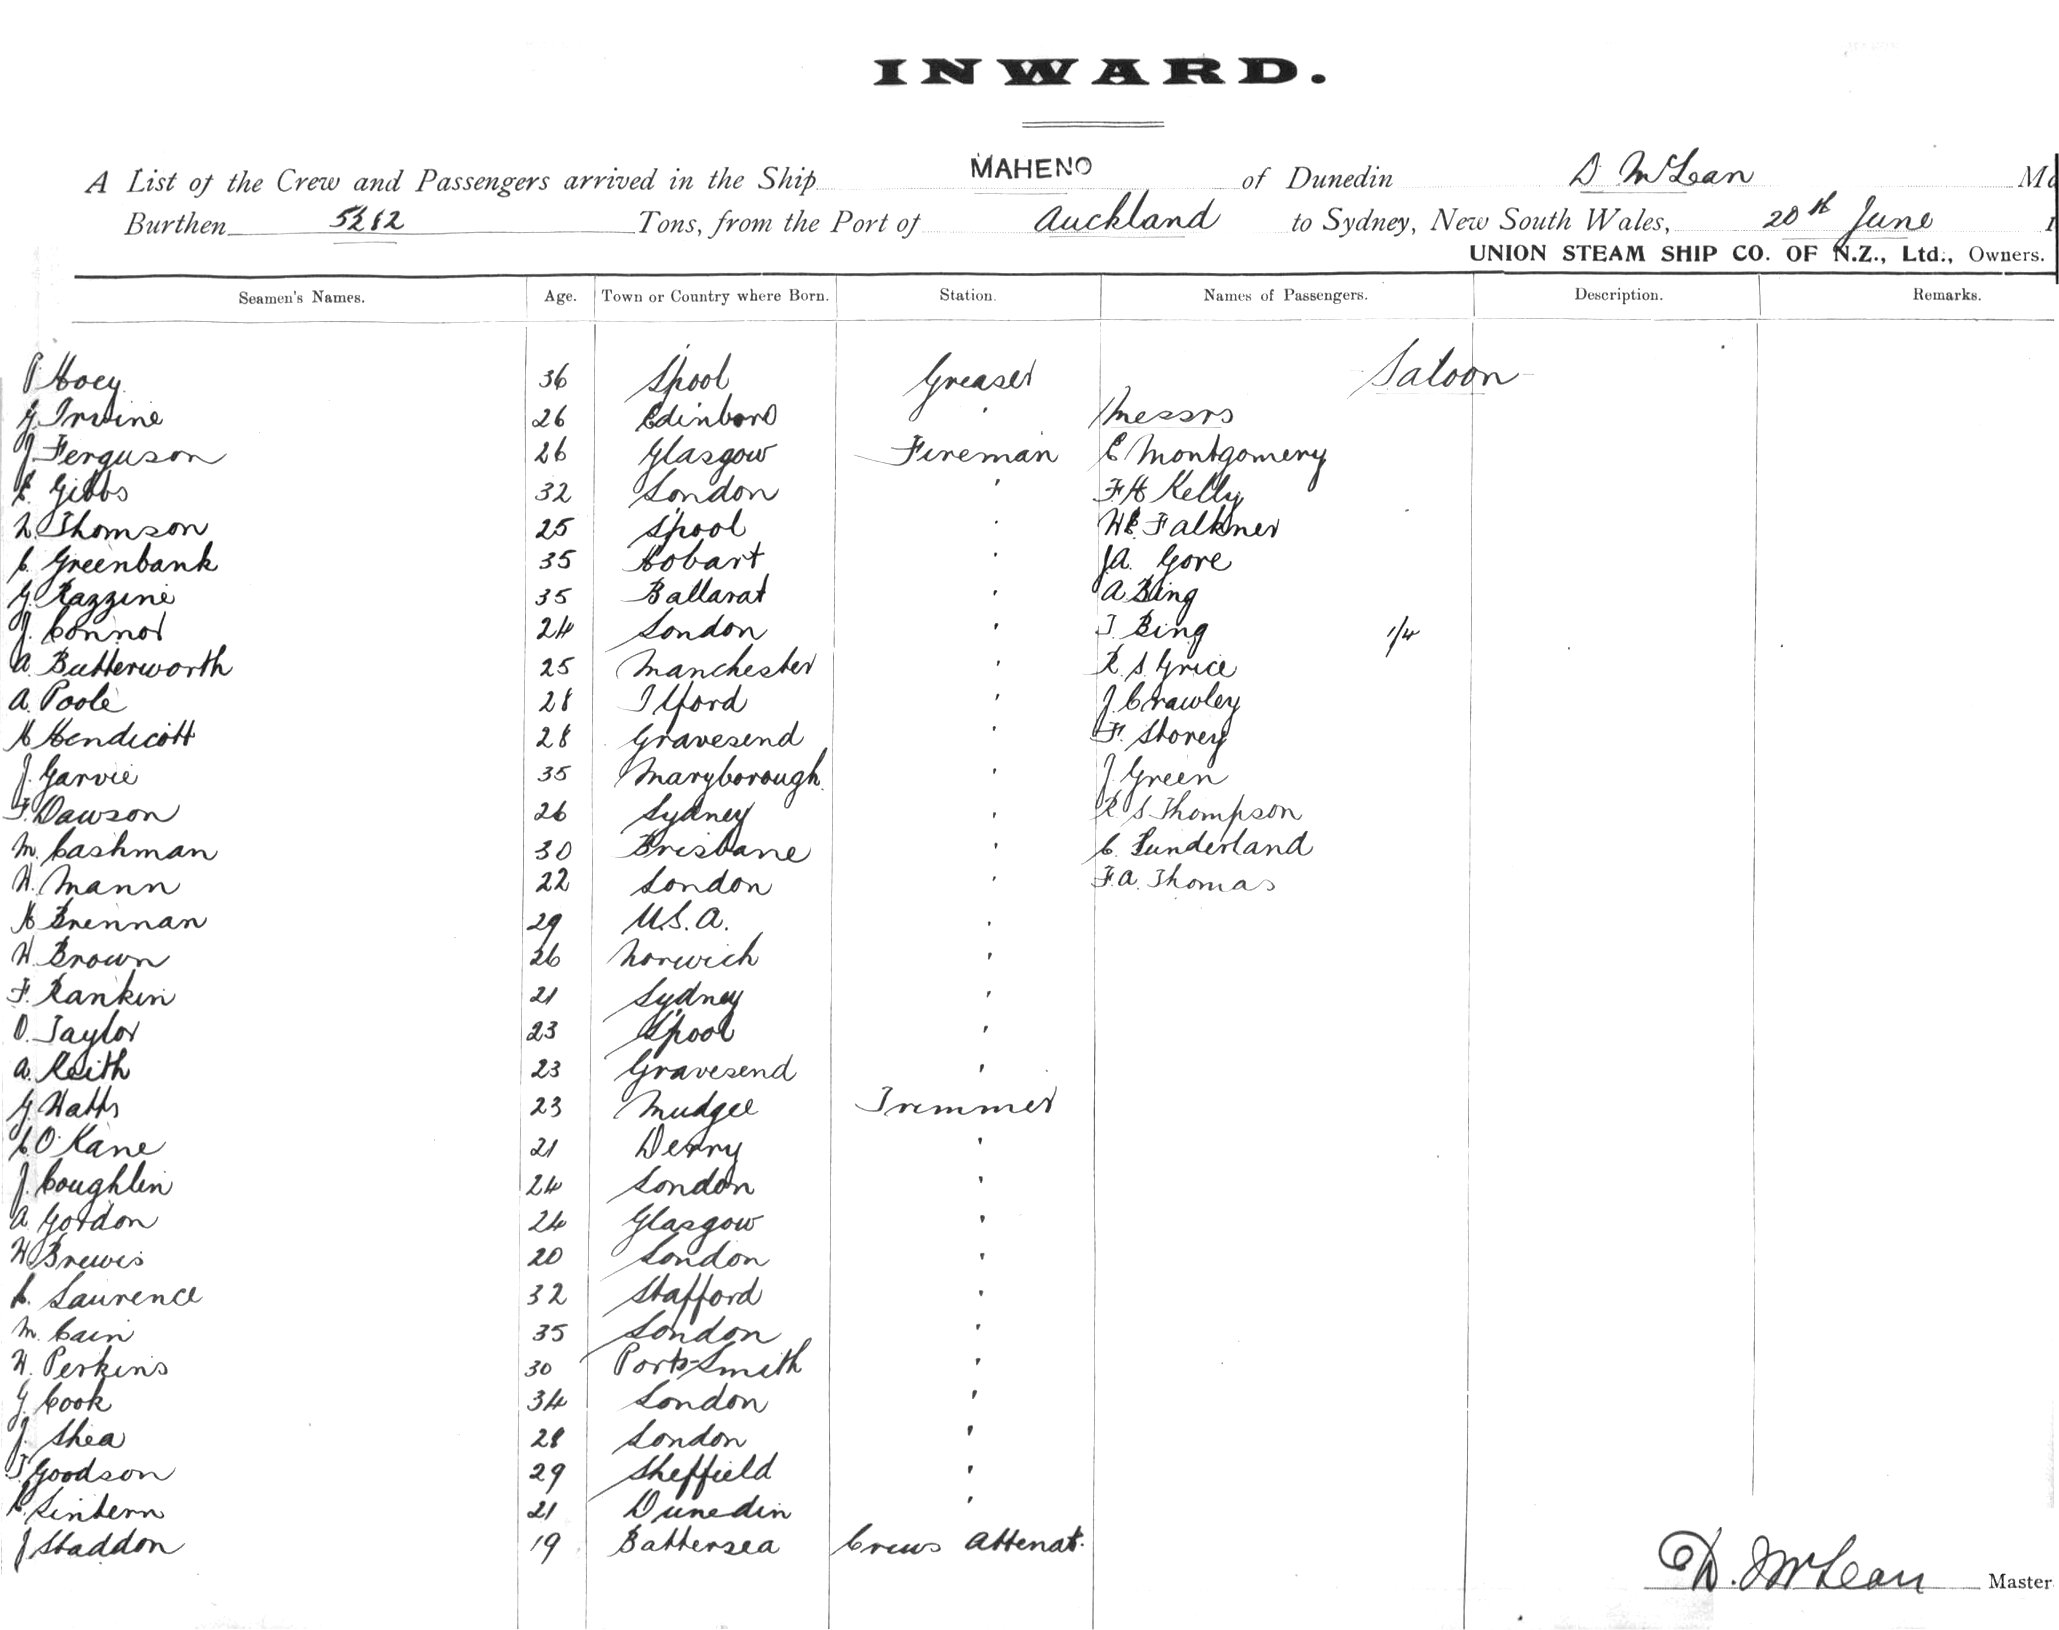 INWARD.
A List of the Crew and Passengers arrived in the Ship MAHENO of Dunedin D McLean
Burthen 5282 Tons, from the Port of Auckland to Sydney, New South Wales, 20th June
UNION STEAM SHIP CO. OF N.Z., Ltd., Owners.
Seamen's Names. Age. Town or Country where Born. Station. Names of Passengers. Description. Remarks.
P Hoey 36 L'pool Greaser Saloon
G. Irvine 26 Edinboro ' Messrs
J. Ferguson 26 Glasgow Fireman E Montgomery
E. Gibbs 32 London ' F.H Kelly
Thomson 25 L'pool ' W.E. Falkner
C. Greenbank 35 Hobart ' J.A. Gore
G. Razzine 35 Ballarat ' A Bing
J. Connor 24 London ' T. Bing 1/4
A. Butterworth 25 Manchester ' R. S. Grice
A. Poole 28 Ilford ' J. Crawley
H Hendicott 28 Gravesend ' F. Storey
J. Garvie 35 Maryborough. ' J Green
F. Dawson 26 Sydney ' R S Thompson
M. Cashman 30 Brisbane ' C. Sunderland
W. Mann 22 London ' F.A. Thomas
H Brennan 29 U.S.A. '
W. Brown 26 Norwich '
F. Rankin 21 Sydney '
O. Taylor 23 L'pool '
A. Keith 23 Gravesend '
G. Watts 23 Mudgee Trimmer
O'Kane 21 Derry '
J. Coughlin 24 London '
A. Gordon 24 Glasgow '
W Brewis 20 London '
Laurence 32 Stafford '
M. Cain 35 London '
W. Perkins 30 Ports-Smith '
G. Cook 34 London '
J. Shea 28 London '
T Goodson 29 Sheffield '
Sintern 21 Dunedin '
J Staddon 19 Battersea Crews Attenat.
D. McLean Master